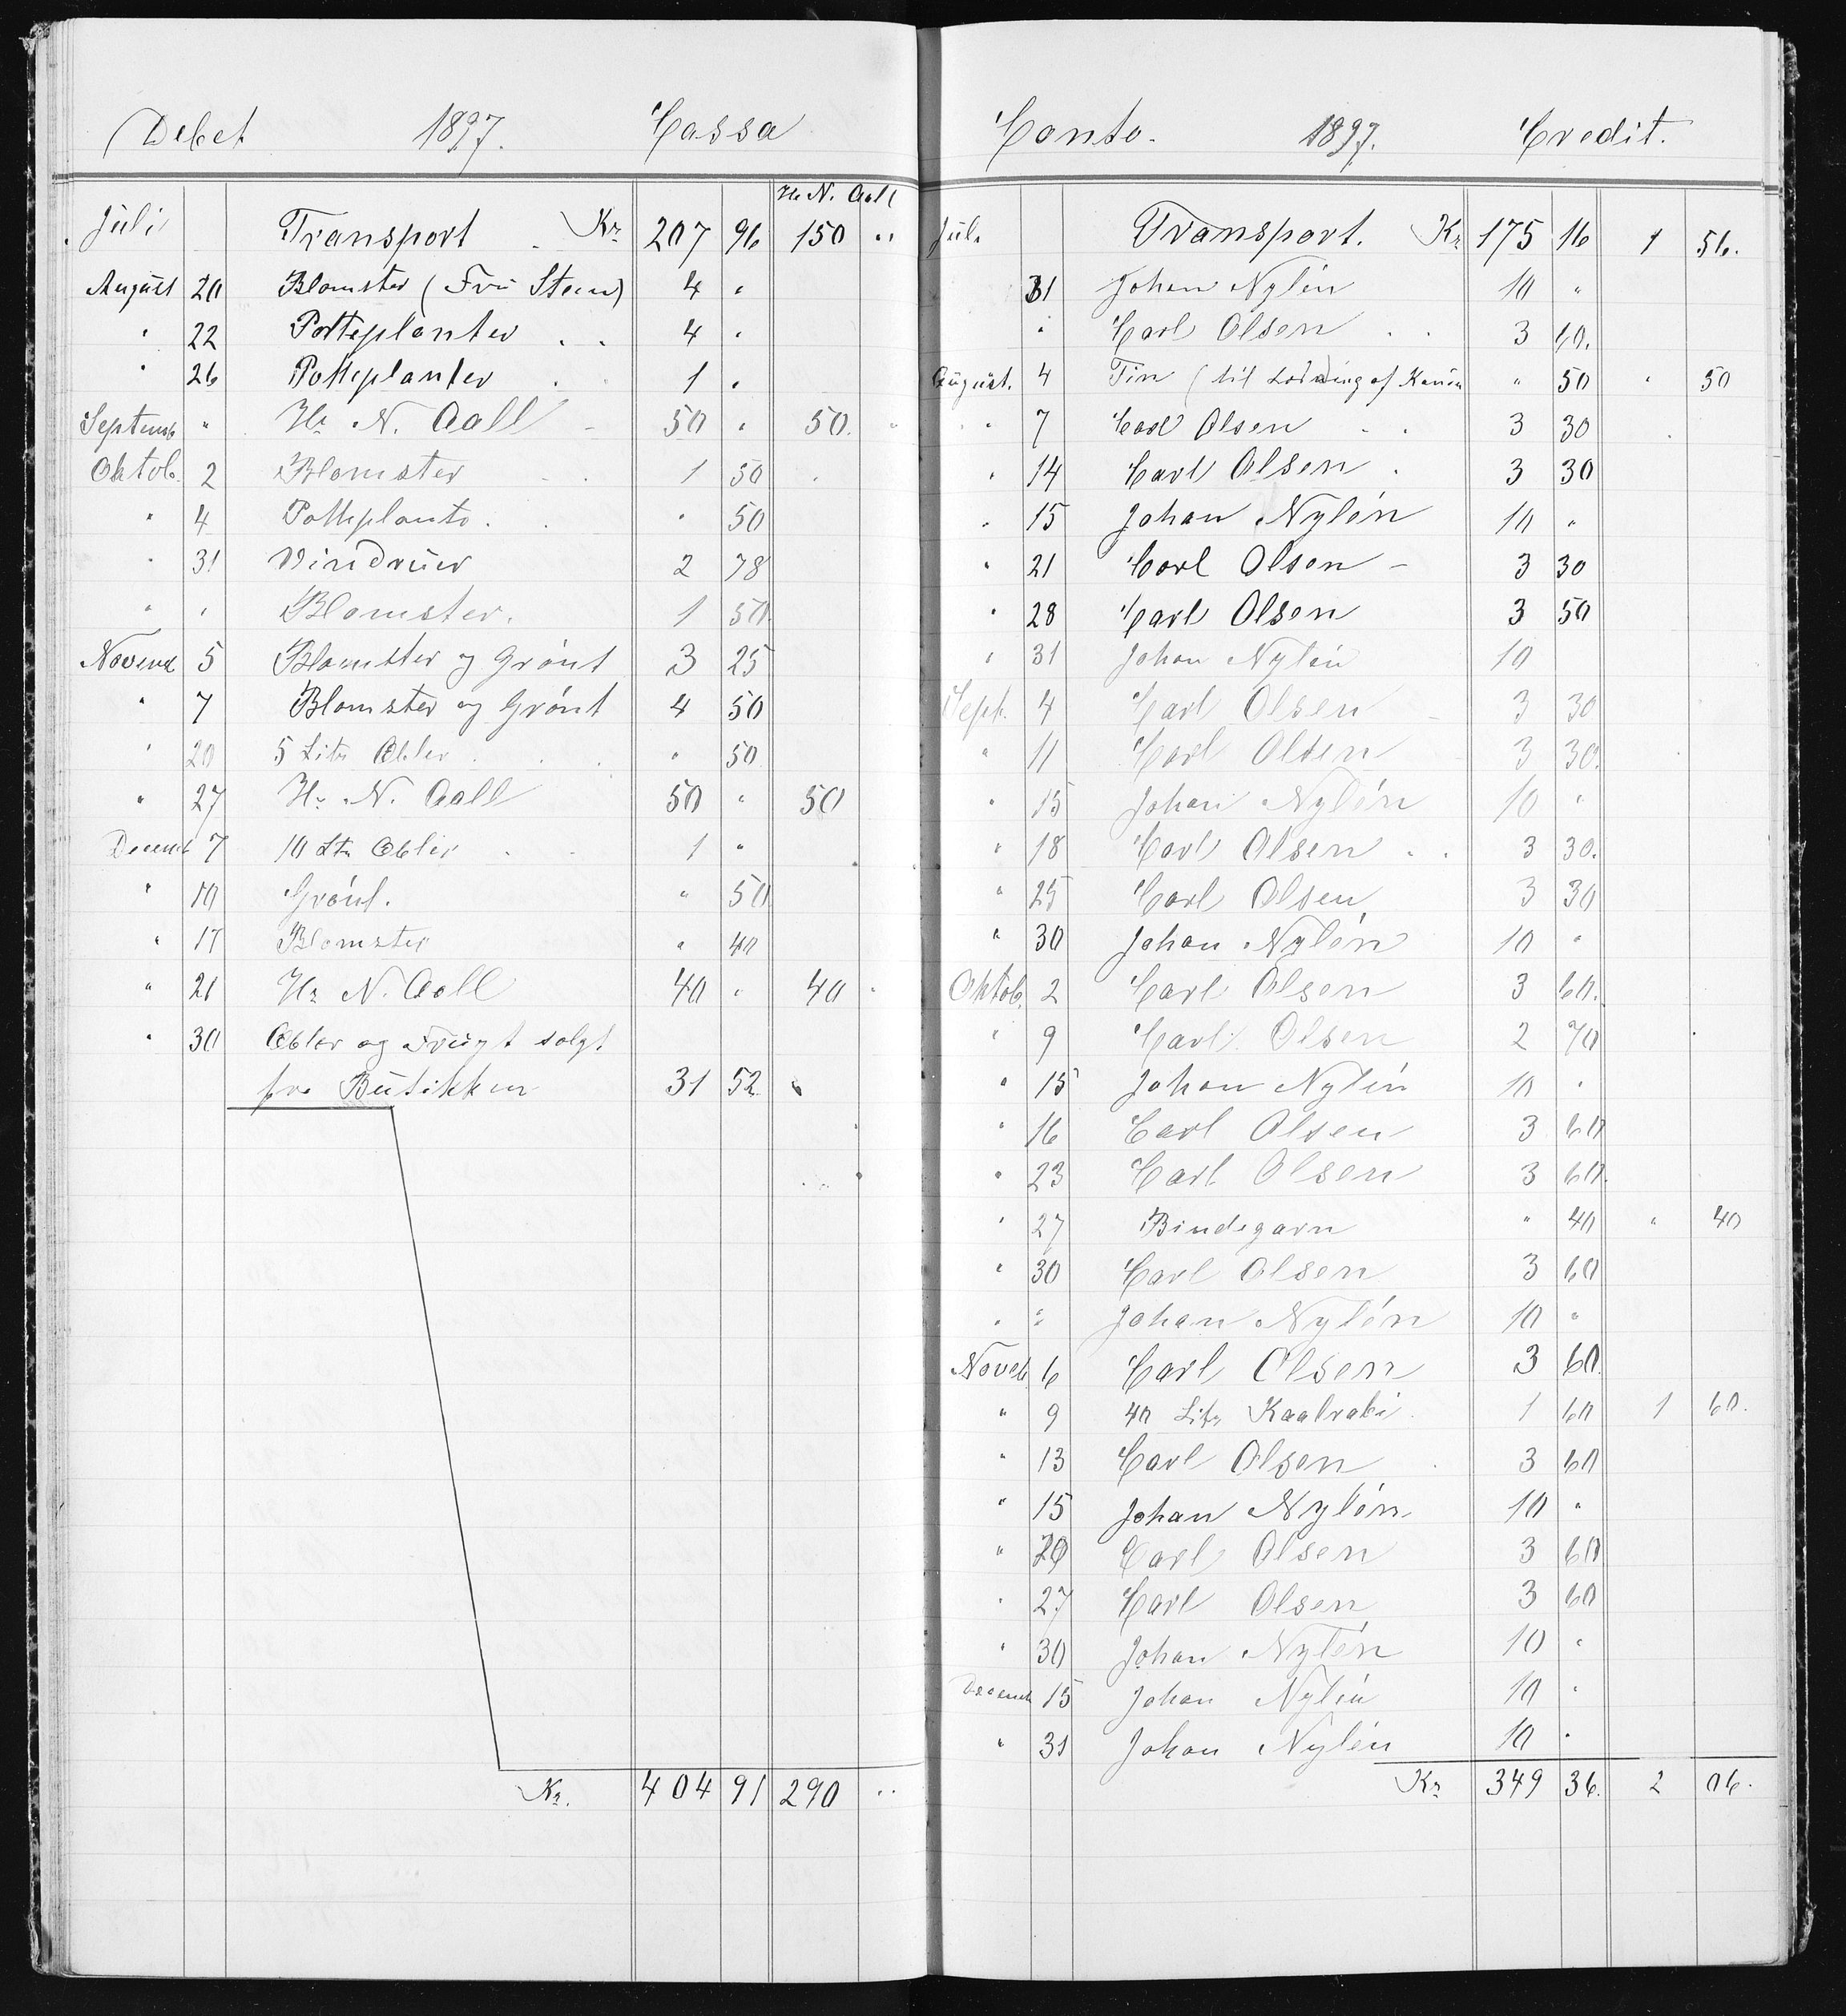 Debet 1897. Cassa
Hr N. Aall
Juli Transport . Kr 207 96 150 "
August 20 Blomster (Fru Steen) 4 "
" 22 Potteplanter . . 4 "
" 26 Potteplanter . . 1 "
Septemb " Hr N. Aall - 50 " 50. "
Oktob. 2 Blomster - . 1 50
" 4 Potteplante . . " 50
" 31 Vindruer 2 78
" " Blomster. 1 50.
Novemb 5 Blomster og Grønt 3 25
" 7 Blomster og Grønt 4 50
" 20 5 Litr Æbler . . . " 50
" 27 Hr N. Aall 50 " 50
Decemb 7 10 Ltr Æbler . . 1 "
" 10 Grønt. " 50
" 17 Blomster " 40
" 21 Hr N. Aall 40 " 40 "
" 30 Æbler og Frugt solgt
fra Butikken 31 52
Kr. 404 91 290 "
Conto. 1897. Credit.
Juli Transport. Kr 175 16 1 56.
31 Johan Nylén 10 "
" Carl Olsen . . 3 60.
August. 4 Tin (til Lodning af Kanen " 50 " 50
" 7 Carl Olsen . . 3 30
" 14 Carl Olsen . 3 30
" 15 Johan Nylén 10 "
" 21 Carl Olsen - 3 30
" 28 Carl Olsen 3 50
" 31 Johan Nylén 10
Sept. 4 Carl Olsen - 3 30
" 11 Carl Olsen 3 30.
" 15 Johan Nylén 10 "
" 18 Carl Olsen . . 3 30.
" 25 Carl Olsen 3 30
" 30 Johan Nylén 10 "
Oktob. 2 Carl Olsen 3 60.
" 9 Carl Olsen 2 70
" 15 Johan Nylén 10 "
" 16 Carl Olsen 3 60
" 23 Carl Olsen 3 60.
" 27 Bindegarn " 40 " 40
" 30 Carl Olsen 3 60
" " Johan Nylén 10 "
Noveb. 6 Carl Olsen 3 60.
" 9 40 Litr Kaalrabi . 1 60 1 60.
" 13 Carl Olsen . 3 60
" 15 Johan Nylén 10 "
" 20 Carl Olsen 3 60
" 27 Carl Olsen 3 60
" 30 Johan Nylén 10 "
Decemb 15 Johan Nylén 10 "
" 31 Johan Nylén 10 "
Kr 349 36. 2 06.